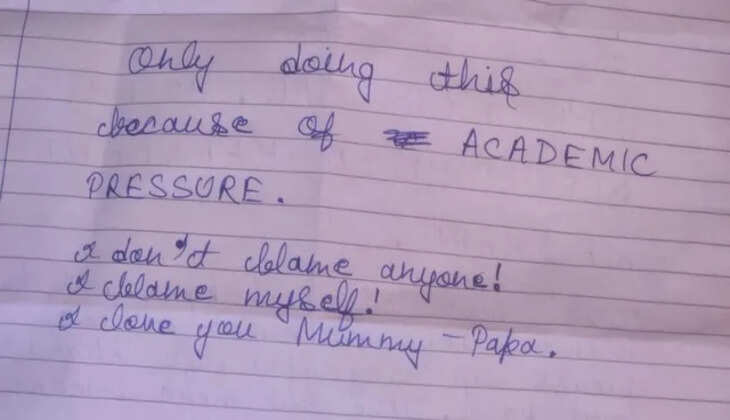 Only doing this
because of ACADEMIC
PRESSURE.
I don't blame anyone!
I blame myself!
I love you Mummy - Papa.